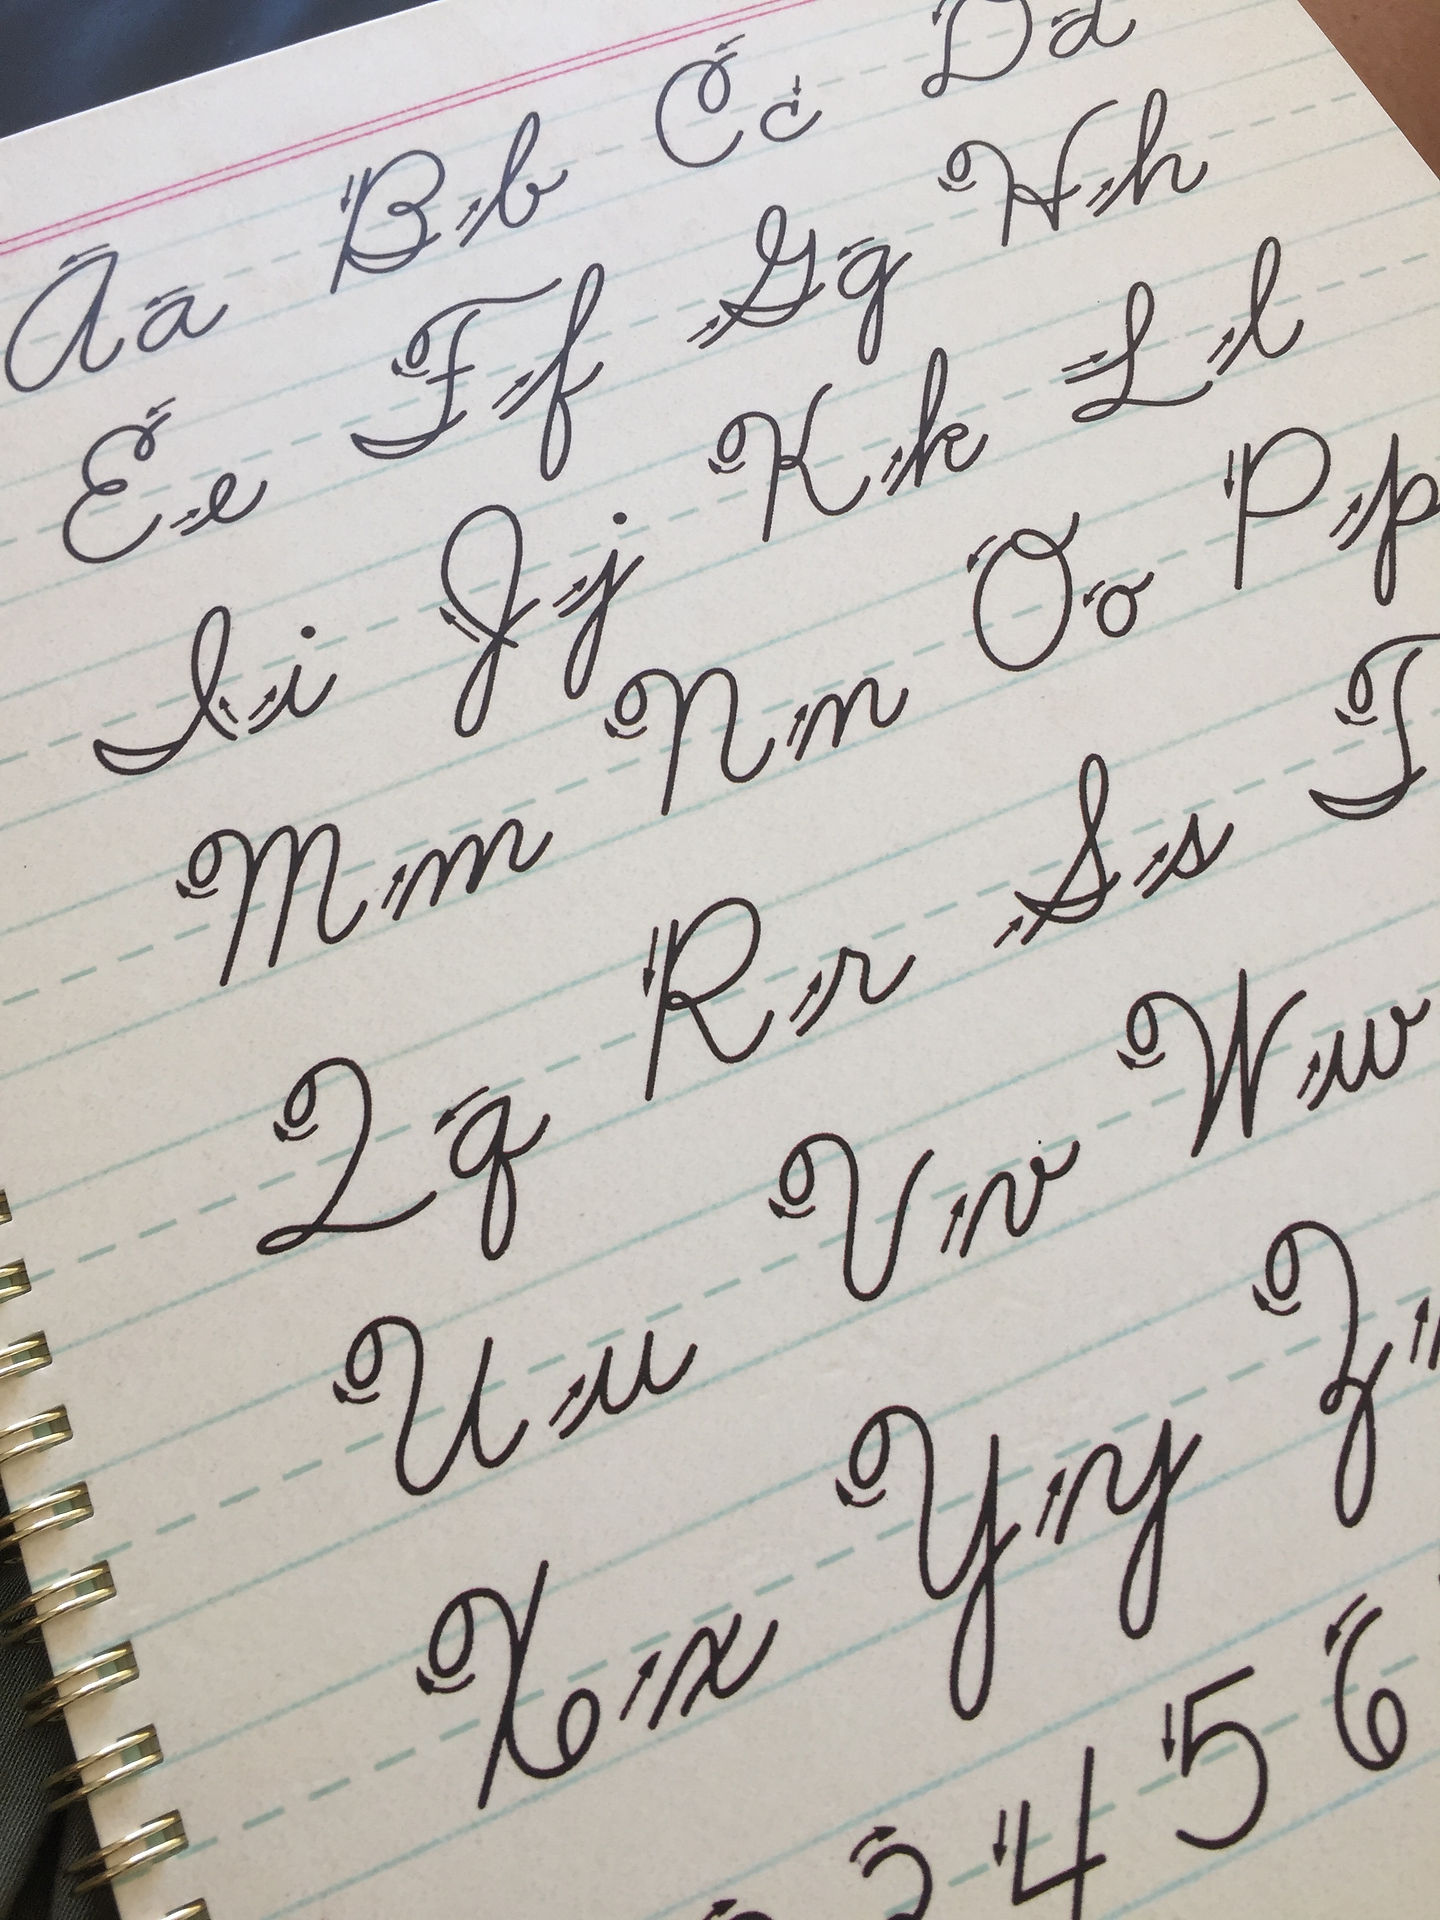 Aa Bb Cc Dd
Ee Ff Gg Hh
Ii Jj Kk Ll
Mm Nn Oo Pp
Qq Rr Ss T
Uu Vv Ww
Xx Yy Z
3 4 5 6